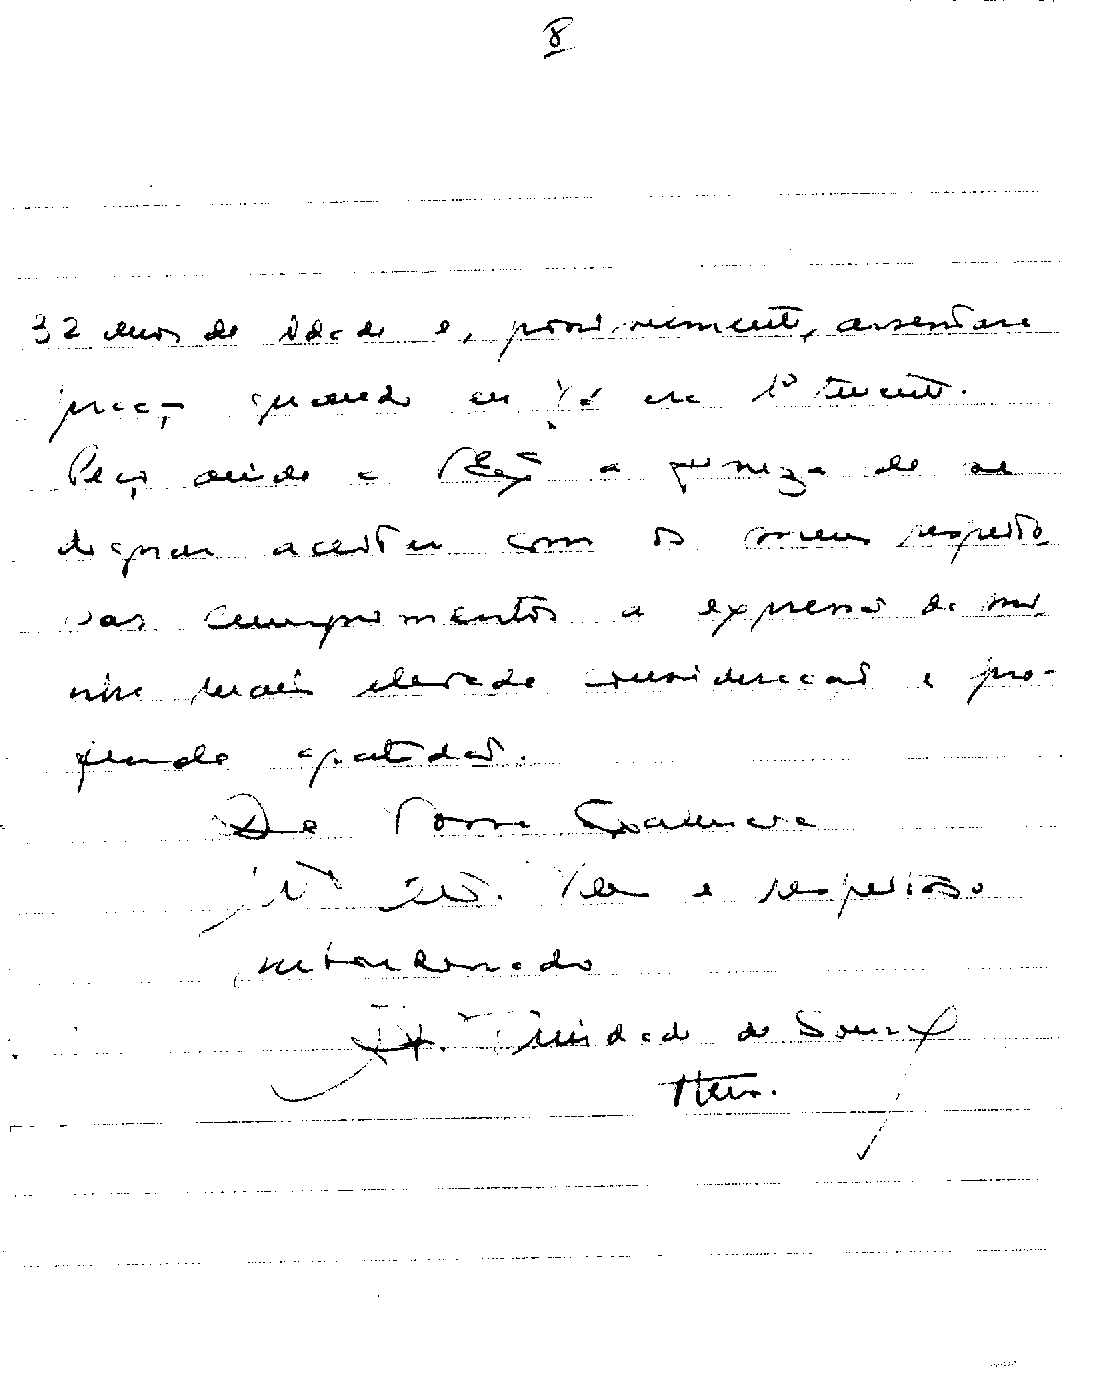 8
32 anos de idade e, possivelmente, assentara
praça quando eu já era 1º tenente.
Peço ainda a V. Exª a fineza de se
dignar aceitar com os meus respeito
sos cumprimentos a expressão de mi
nha mais elevada consideração e pro-
funda gratidão.
De Vossa Excelência
e respeitoso
subordinado
Trindade de Souza